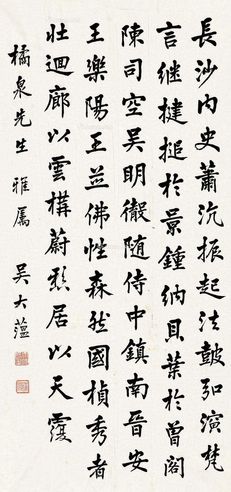 長沙內史蕭沇振起法皷弘演梵
言继揵搥於景鍾納貝葉於曾阁
陳司空吳明徹随侍中鎮南晉安
王樂陽王並佛性森然國楨秀者
壯迴廊以雲構蔚居以天覆
橘泉先生雅属 吳大